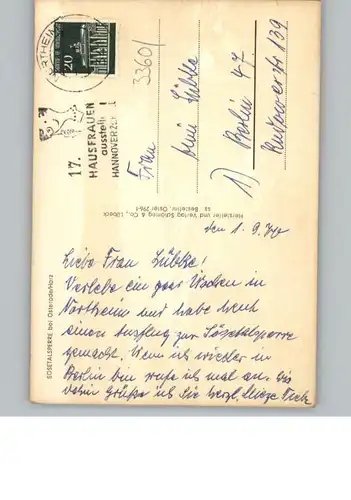 20
3360/
17.
HAUSFRAUEN
ausstell
HANNOVER
Frau
Lübke
1) Berlin 47
139
SÖSETALSPERRE bei Osterode/Harz
Hersteller und Verlag Schöning & Co., Lübeck
den 1. 9.
Liebe Frau Lübke!
Verlebe ein paar Wochen in
Northeim und habe heut
einen Ausflug zur Sösetalsperre
gemacht. Wenn ich wieder in
Berlin bin rufe ich mal an. Bis
dahin Grüße ich Sie herzl.